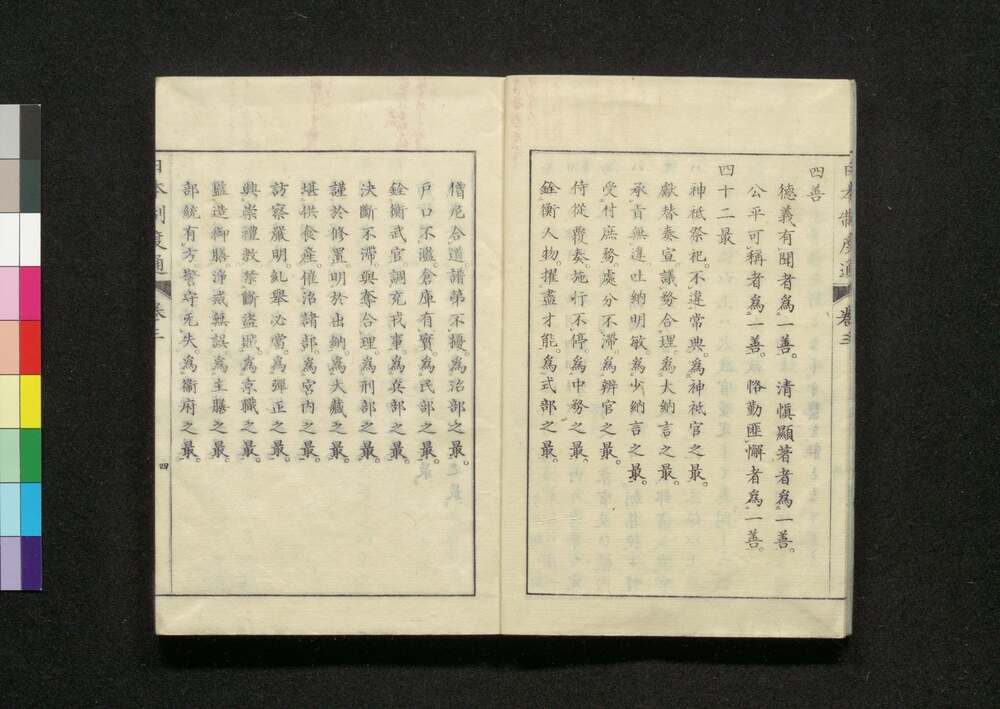 四善
德義有聞者為一善。清愼顯著者為一善。
公平可稱者為一善。恪勤匪懈者為一善。
四十二最
神祗祭祀。不違常典。為神祗官之最。
獻替奏宣。議務合理。為大納言之最。
承旨無違。吐納明敏。為少納言之最。
受付庶務。處分不滯。為辨官之最。
侍從覆奏。施行不停。為中務之最。
銓衡人物。擢盡才能。為式部之最。
僧尼合道。譜第不擾。為治部之最。
戶口不濫。倉庫有實。為民部之最。
銓衡武官。調充戎事。為兵部之最。
決斷不滯。與奪合理。為刑部之最。
謹於修置。明於出納。為大藏之最。
堪供食產。催治諸部。為宮內之最。
訪察嚴明。糺舉必當。為彈正之最。
興崇禮教。禁斷盜賊。為京職之最。
監造御膳。淨戒無誤。為主膳之最。
部統有方。警守無失。為衞府之最。
日本制度通
卷三
四